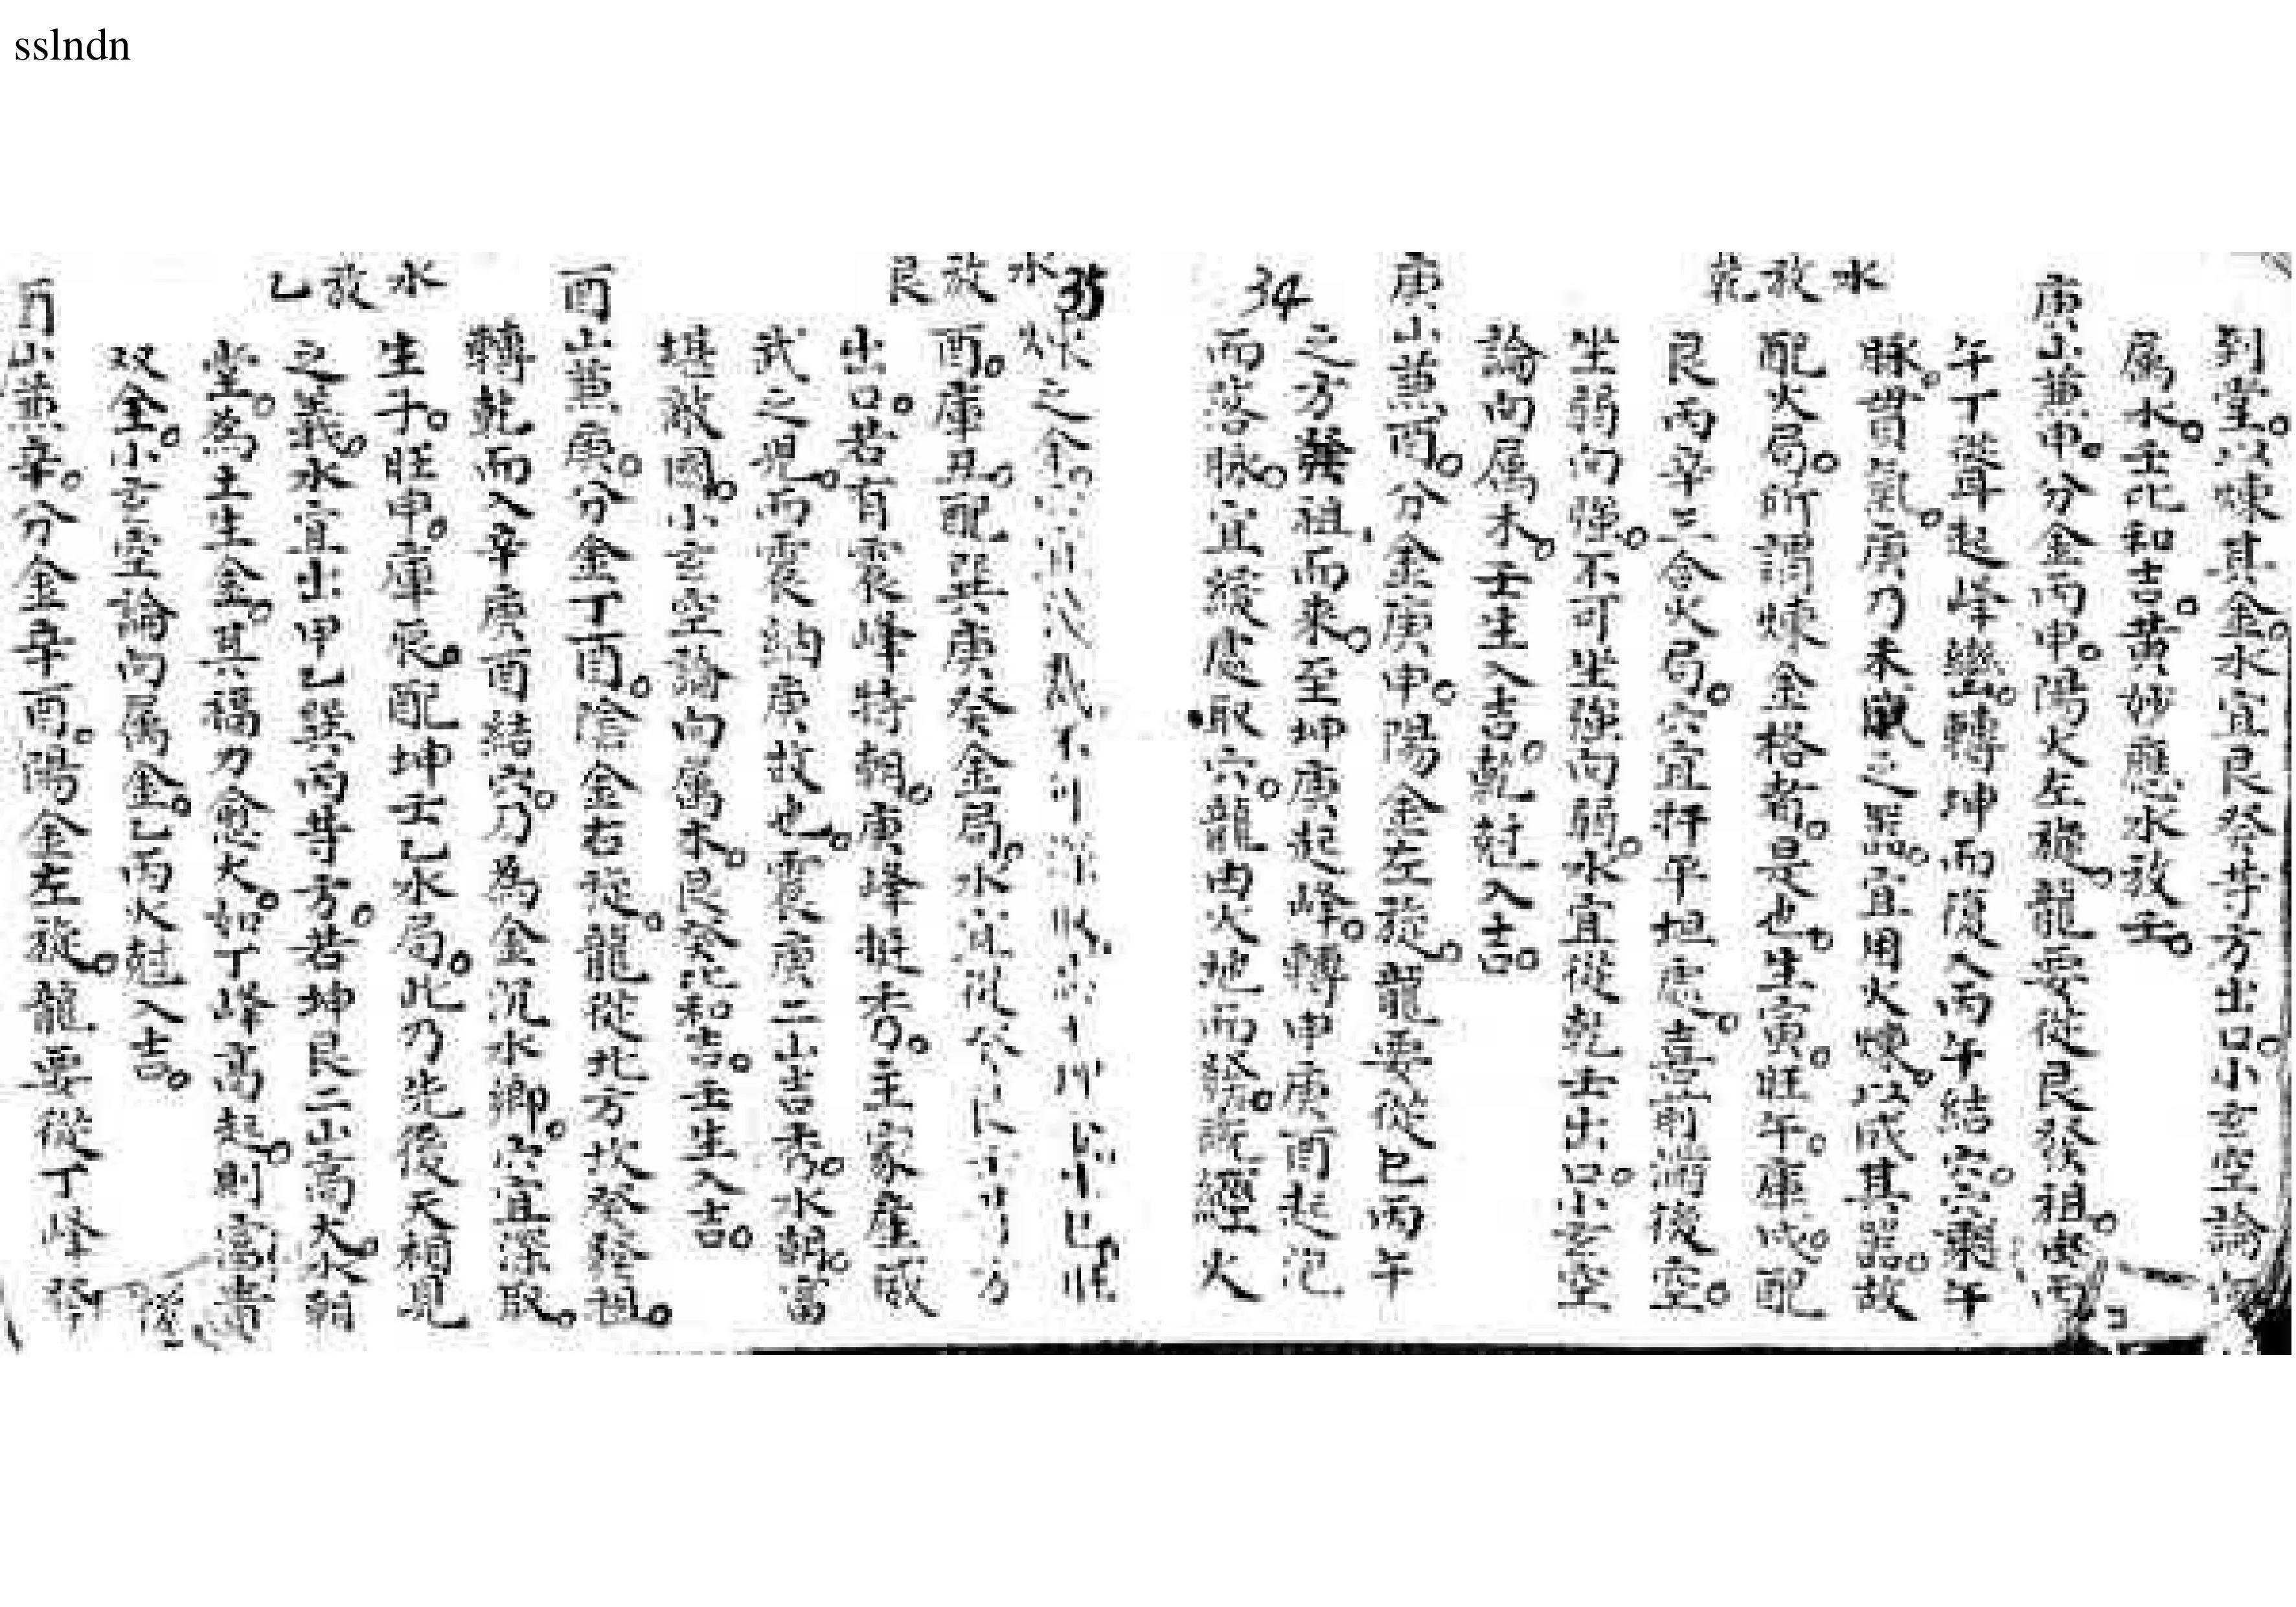 sslndn
到堂。以煉其金。水宜艮癸等方出口。小玄空論向
属水。壬比和吉。黃妙應水放壬。
水放乾
庚山兼申。分金丙申。陽火左旋。龍要從艮發祖。
午丁從耳起峰巒。轉坤而復入丙午結穴。剩午
脉。冒氣。庚乃未成之器。宜用火煉。以成其器。故
配火局。所謂煉金格者。是也。生寅。旺午。庫戌。配
艮丙辛三合火局。穴宜扦平坦處。喜前滿後空。
坐弱向強。不可坐強向弱。水宜從乾壬出口。小玄空
論向属木。壬生入吉。乾尅入吉。
庚山兼酉。分金庚申。陽金左旋。龍要從巳丙午
之方發祖而来。至坤庚起峰。轉申庚酉起泡
而落脉。宜緩處取穴。龍由火地而發。既經火
34
35
水放艮
煉之金。
酉。庫丑。配巽庚癸金局。水宜從
出口。若有震峰特朝。庚峰挺秀。主家產威
武之児。而震納庚故也。震庚二山吉秀。水朝。富
堪敵國。小玄空論向属木。艮癸比和吉。壬生入吉。
水放乙
酉山兼庚。分金丁酉。陰金右旋。龍從北方坎癸發祖。
轉乾而入辛庚酉結穴。乃為金沉水鄉。穴宜深取。
生子。旺申。庫辰。配坤壬乙水局。此乃先後天相見
之義。水宜出甲乙巽丙等方。若坤艮二山高大。水朝
堂。為土生金。其福力愈大。如丁峰高起。則富貴
双全。小玄空論向属金。乙丙火尅入吉。
酉山兼辛。分金辛酉。陽金左旋。龍要從丁峰發